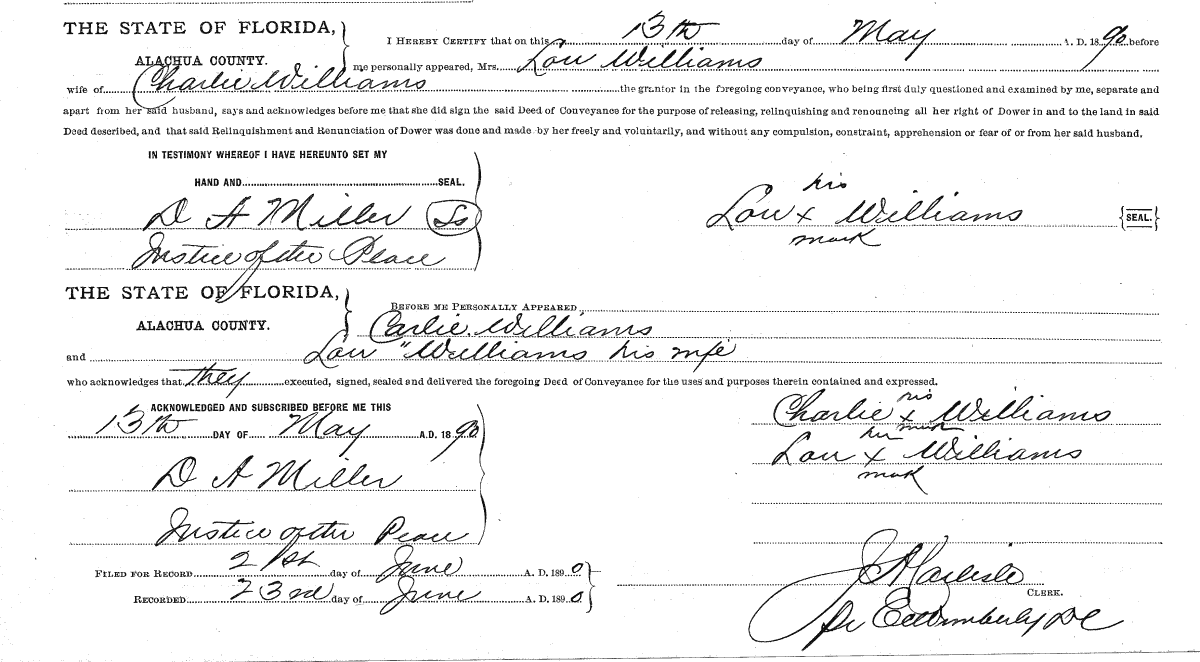 THE STATE OF FLORIDA,
ALACHUA COUNTY.
I HEREBY CERTIFY that on this 13th day of May A. D. 1890 before
me personally appeared, Mrs. Lou Williams
wife of Charlie Williams the grantor in the foregoing conveyance, who being first duly questioned and examined by me, separate and
apart from her said husband, says and acknowledges before me that she did sign the said Deed of Conveyance for the purpose of releasing, relinquishing and renouncing all her right of Dower in and to the land in said
Deed described, and that said Relinquishment and Renunciation of Dower was done and made by her freely and voluntarily, and without any compulsion, constraint, apprehension or fear of or from her said husband.
IN TESTIMONY WHEREOF I HAVE HEREUNTO SET MY
HAND AND SEAL.
D A Miller
Justice of the Peace
his
Lou x Williams {SEAL.}
mark
THE STATE OF FLORIDA,
ALACHUA COUNTY.
BEFORE ME PERSONALLY APPEARED
Carlie Williams
and Lou Williams his wife
who acknowledges that they executed, signed, sealed and delivered the foregoing Deed of Conveyance for the uses and purposes therein contained and expressed.
ACKNOWLEDGED AND SUBSCRIBED BEFORE ME THIS
13th DAY OF May A.D. 1890
D A Miller
Justice of the Peace
his
Charlie x Williams
mark
her
Lou x Williams
mark
FILED FOR RECORD 21st day of June A. D. 1890
RECORDED 23rd day of June A. D. 1890
J A Carlisle
CLERK.
Wimberly DC